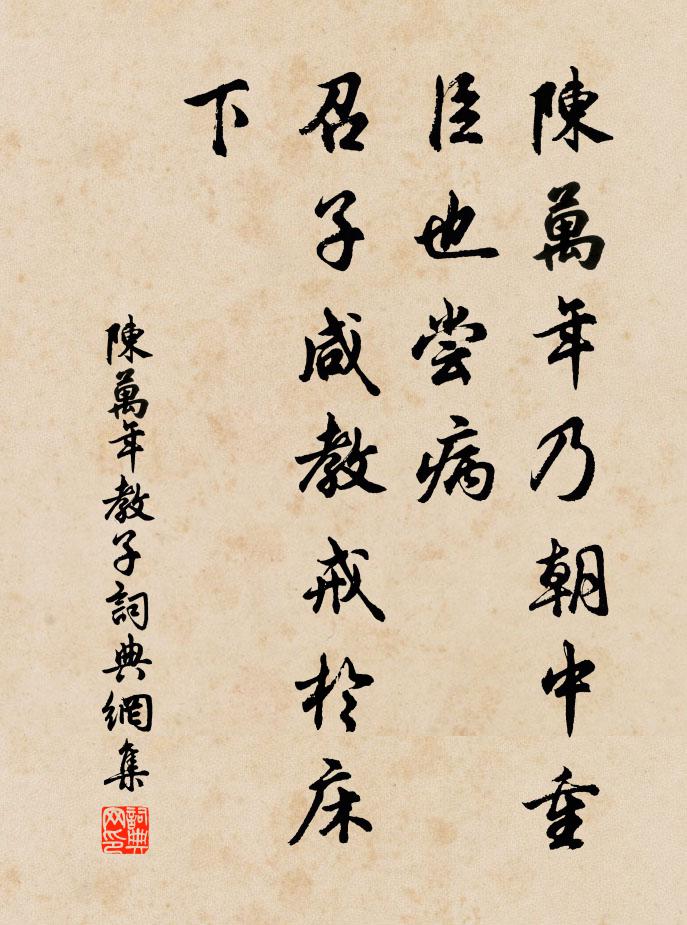 陳萬年乃朝中重
臣也嘗病
召子咸教戒於床
下
陳萬年教子詞典網集
詞典网印